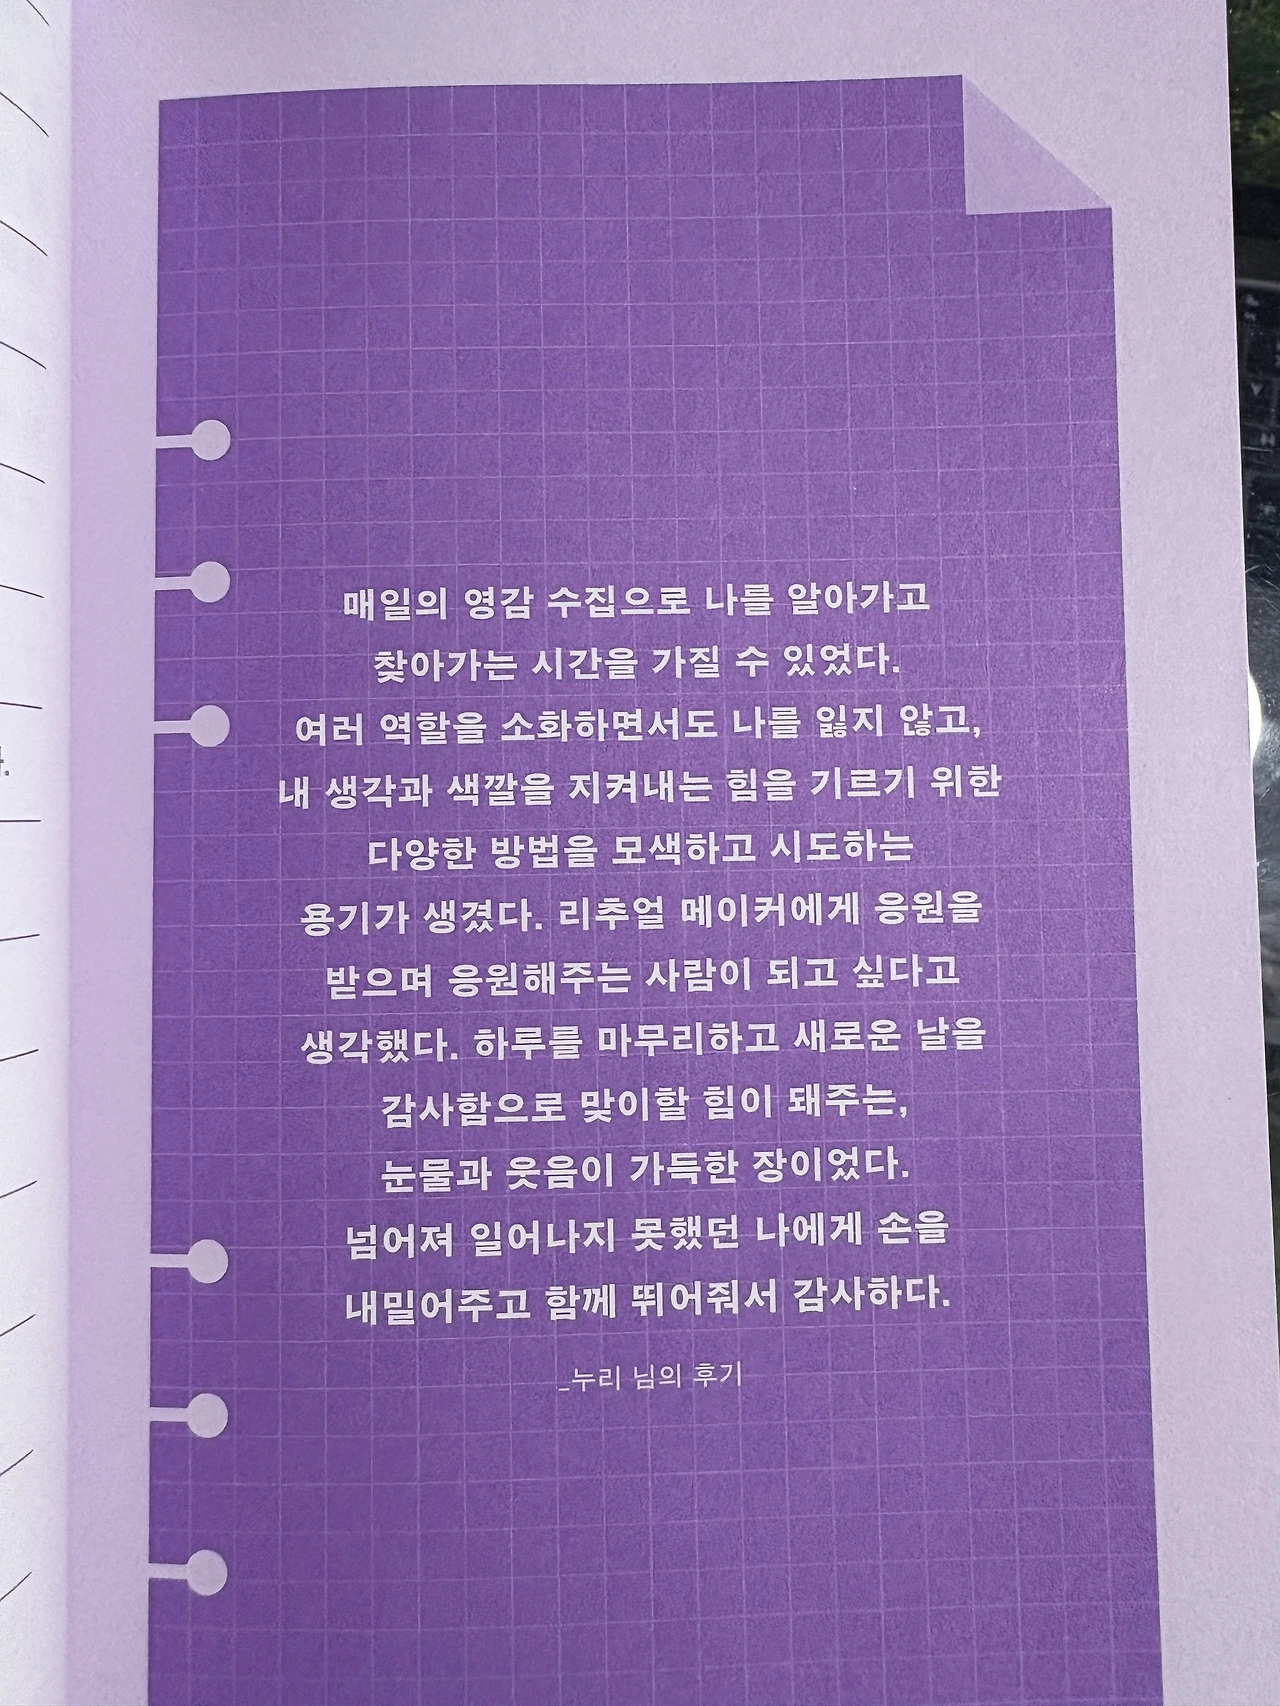 매일의 영감 수집으로 나를 알아가고
찾아가는 시간을 가질 수 있었다.
여러 역할을 소화하면서도 나를 잃지 않고,
내 생각과 색깔을 지켜내는 힘을 기르기 위한
다양한 방법을 모색하고 시도하는
용기가 생겼다. 리추얼 메이커에게 응원을
받으며 응원해주는 사람이 되고 싶다고
생각했다. 하루를 마무리하고 새로운 날을
감사함으로 맞이할 힘이 돼주는,
눈물과 웃음이 가득한 장이었다.
넘어져 일어나지 못했던 나에게 손을
내밀어주고 함께 뛰어줘서 감사하다.
_누리 님의 후기